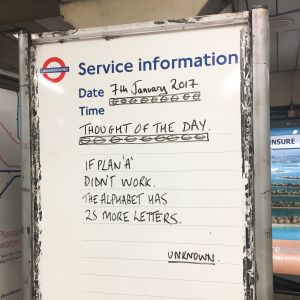 UNDERGROUND
Service information
Date 7th January 2017
Time
THOUGHT OF THE DAY.
IF PLAN 'A'
DIDN'T WORK.
THE ALPHABET HAS
25 MORE LETTERS.
UNKNOWN.
NSURE